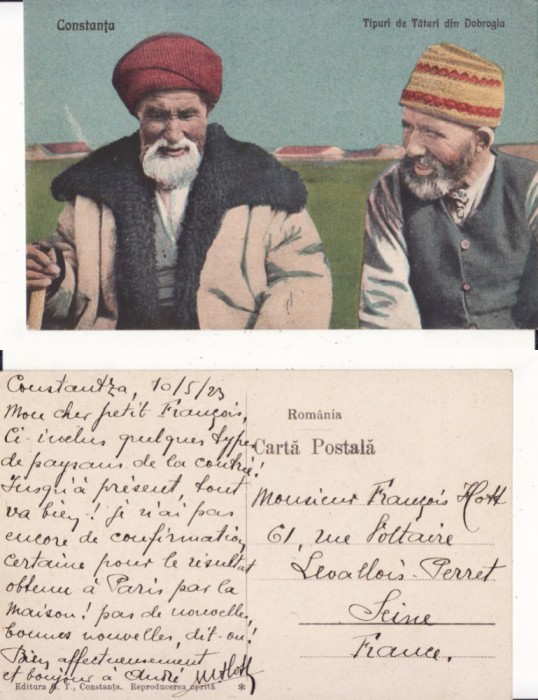 Constanţa
Tipuri de Tătari din Dobrogia
Constantza, 10/5/23
Mon cher petit François,
Ci-inclus quelques types
de paysans de la contrée!
Jusqu'à présent, tout
va bien! je n'ai pas
encore de confirmation
certaine pour le résultat
obtenu à Paris par la
maison! pas de nouvelles,
bonnes nouvelles, dit-on!
Bien affectueusement
et bonjour à André
România
Cartă Postală
Monsieur François Hott
61, rue Voltaire
Levallois-Perret
Seine
France.
Editura T., Constanţa. Reproducerea oprită *